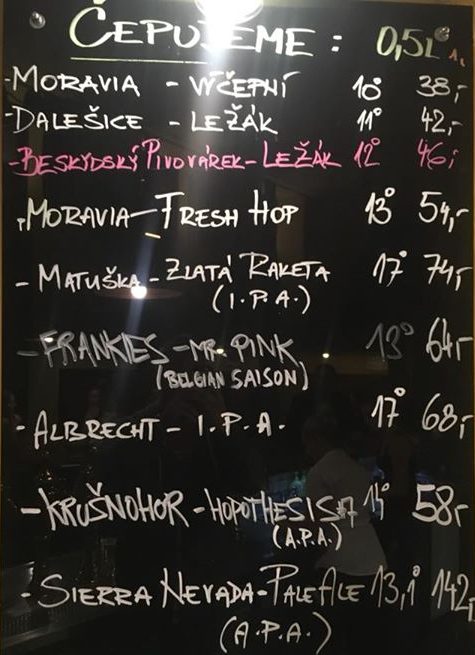 ČEPUJEME : 0,5L
-MORAVIA - VÝČEPNÍ 10° 38,-
-DALEŠICE - LEŽÁK 11° 42,-
-BESKYDSKÝ PIVOVÁREK-LEŽÁK 12° 46,-
-MORAVIA-FRESH HOP 13° 54,-
- MATUŠKA - ZLATÁ RAKETA 17° 74,-
(I.P.A.)
-FRANKIES-MR. PINK 13° 64,-
(BELGIAN SAISON)
- ALBRECHT - I.P.A. 17° 68,-
-KRUŠNOHOR-HOPOTHESIS #7 14° 58,-
(A.P.A.)
-SIERRA NEVADA-PALE ALE 13,1° 142,-
(A.P.A.)